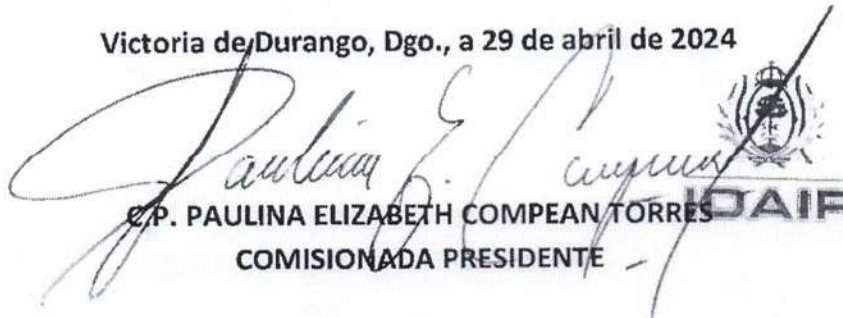 Victoria de Durango, Dgo., a 29 de abril de 2024
Paulina E. Compean
C.P. PAULINA ELIZABETH COMPEAN TORRES
IDAIP
COMISIONADA PRESIDENTE